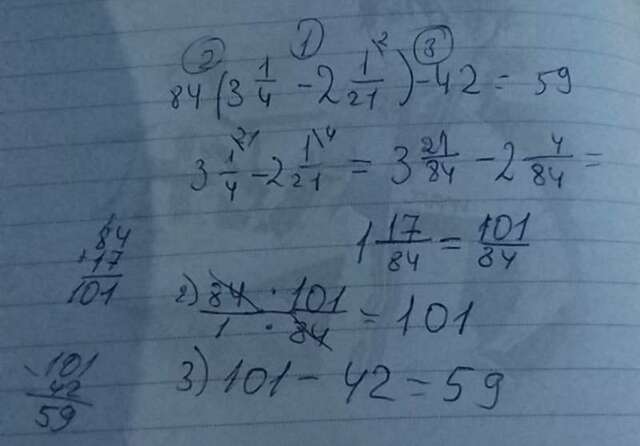 ② ① ③
84(3 1/4 - 2 1/21) - 42 = 59
3 1/4 \21 - 2 1/21 \4 = 3 21/84 - 2 4/84 =
1 17/84 = 101/84
84
+17
101
2) 84 · 101 / 1 · 84 = 101
3) 101 - 42 = 59
-101
42
59